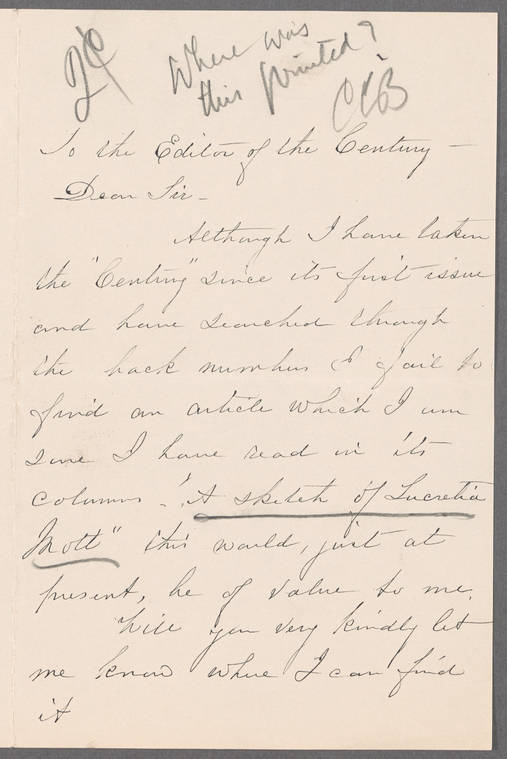 Where was
this printed?
CCB
To the Editor of the Century —
Dear Sir —
Although I have taken
the "Century" since its first issue
and have searched through
the back numbers I fail to
find an article which I am
sure I have read in its
columns — "A sketch of Lucretia
Mott" this would, just at
present, be of value to me.
Will you very kindly let
me know where I can find
it